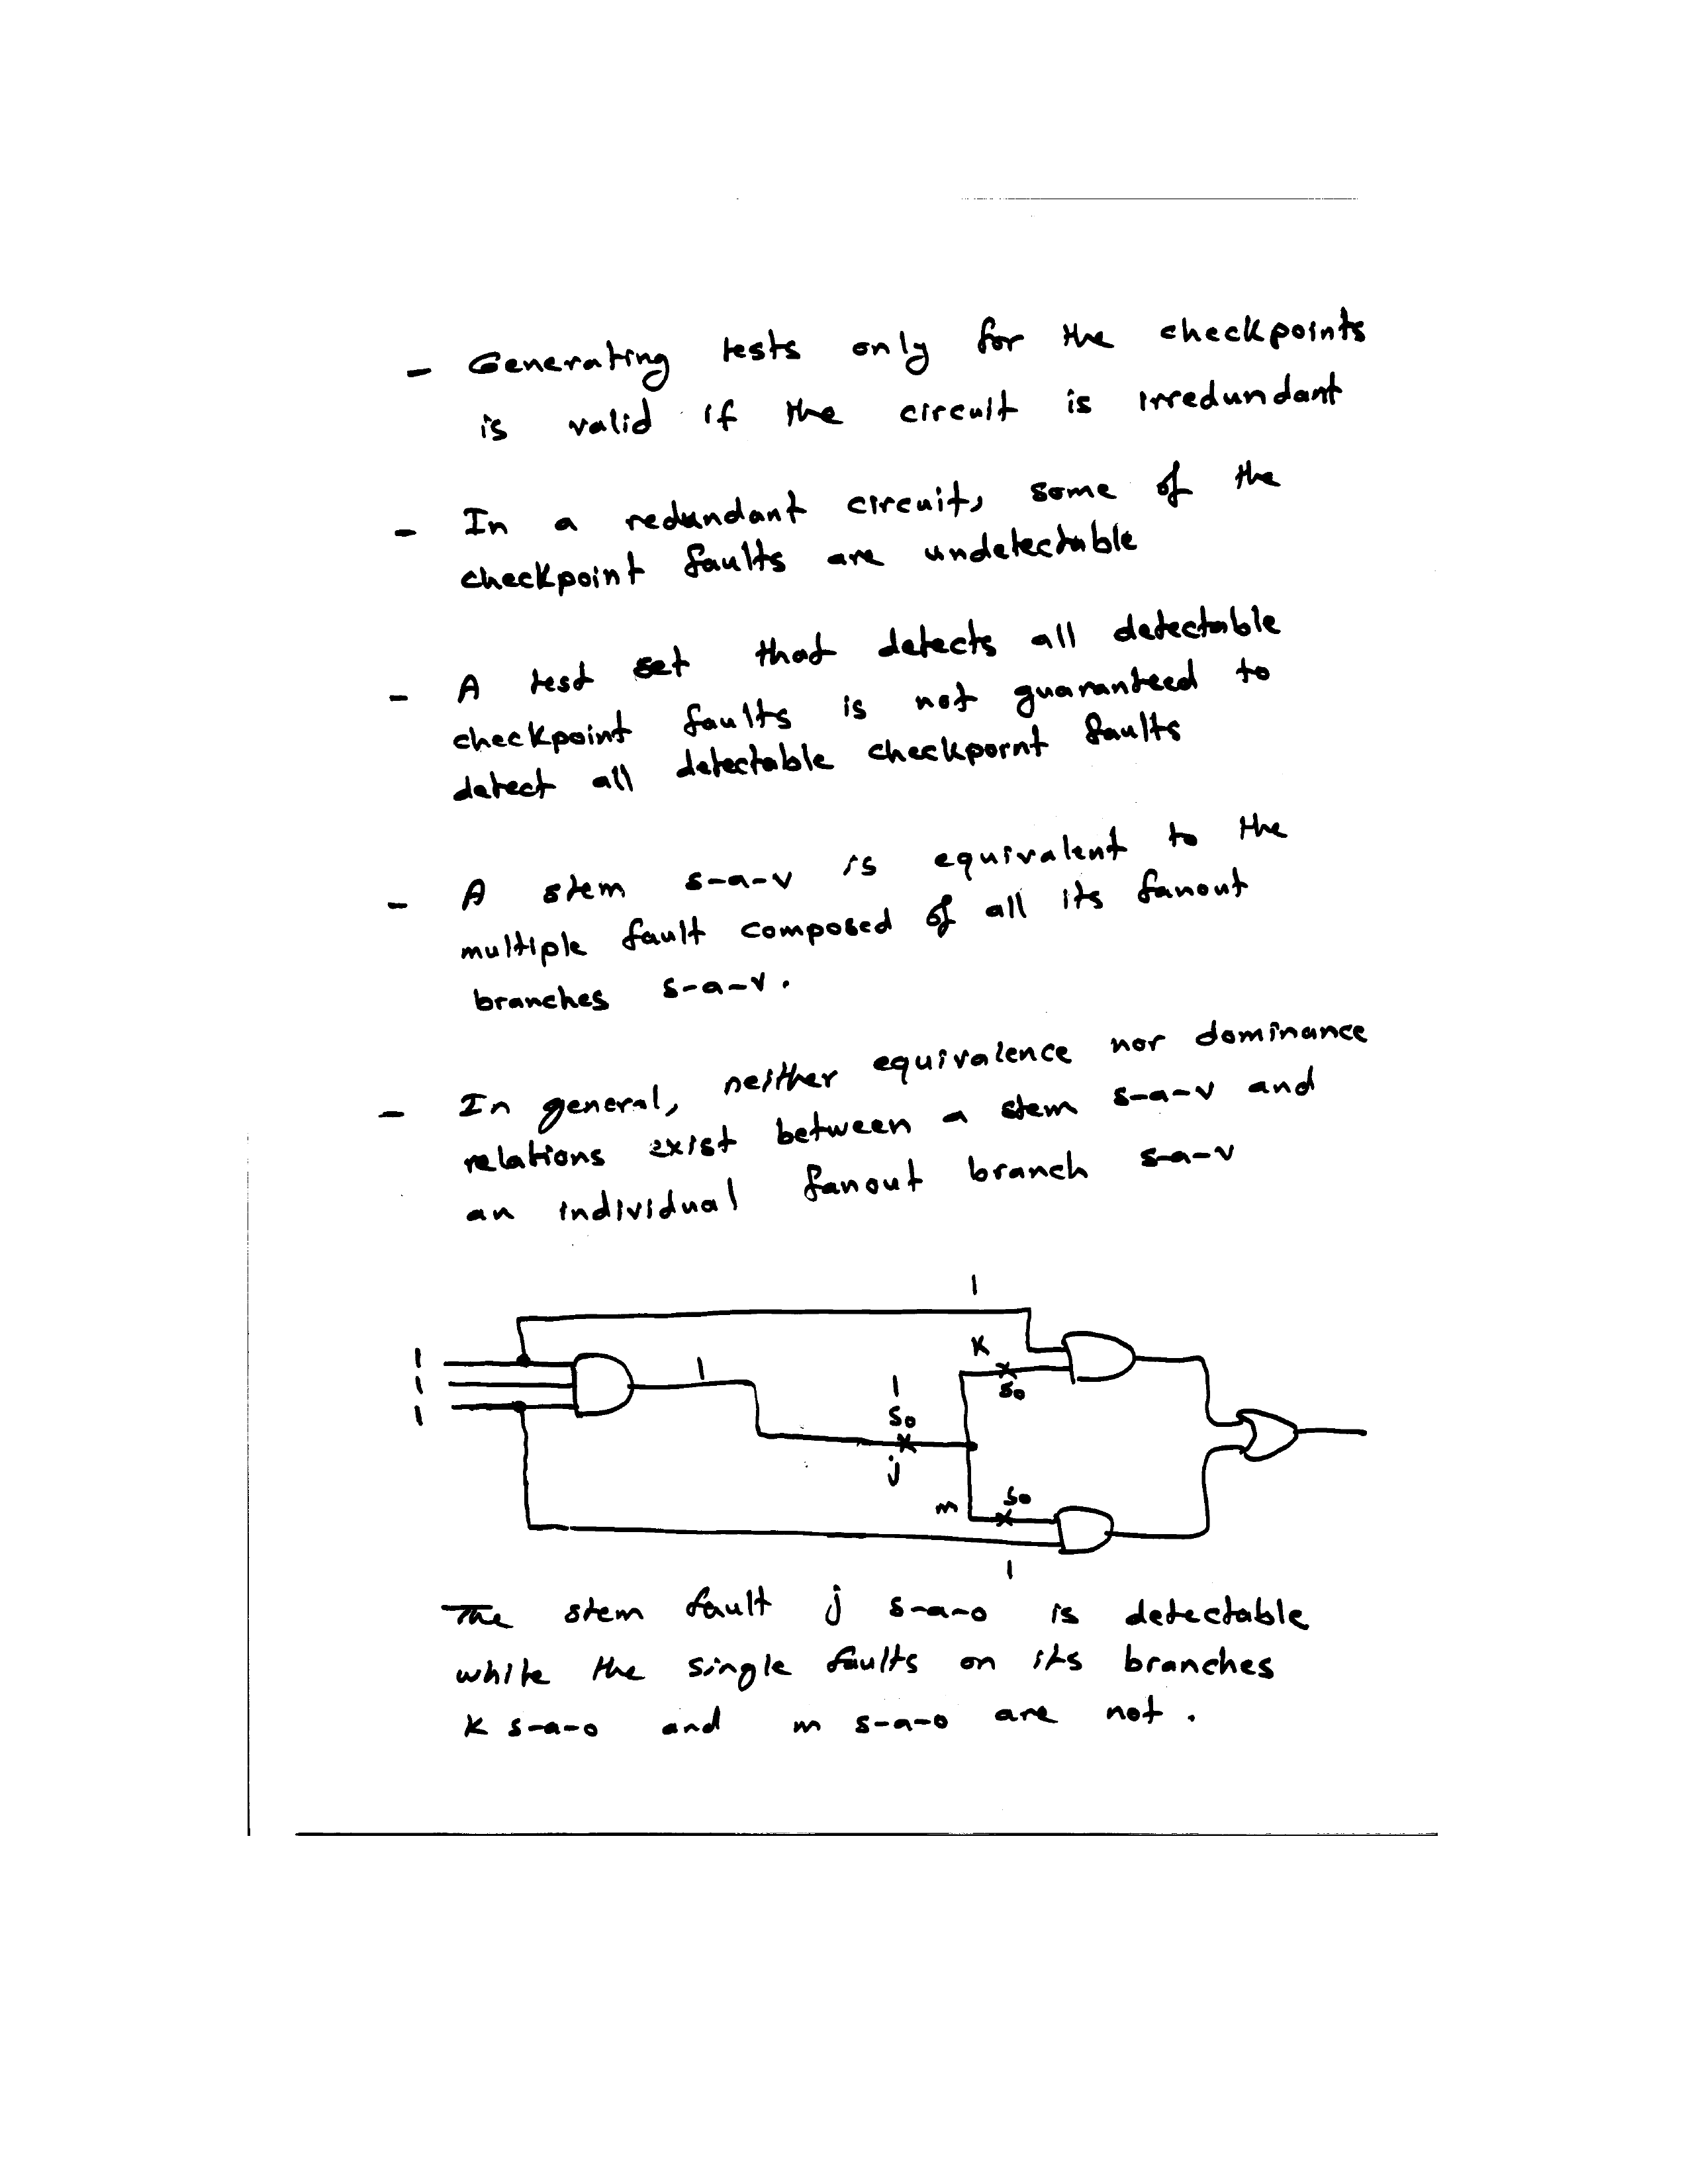 - Generating tests only for the checkpoints
is valid if the circuit is irredundant
- In a redundant circuit, some of the
checkpoint faults are undetectable
- A test set that detects all detectable
checkpoint faults is not guaranteed to
detect all detectable checkpornt faults
- A stem s-a-v is equivalent to the
multiple fault composed of all its fanout
branches s-a-v.
- In general, neither equivalence nor dominance
relations exist between a stem s-a-v and
an individual fanout branch s-a-v
1
K
1
1
1
1
1
s0
s0
j
m
s0
1
The stem fault j s-a-0 is detectable
while the single faults on its branches
K s-a-0 and m s-a-0 are not.